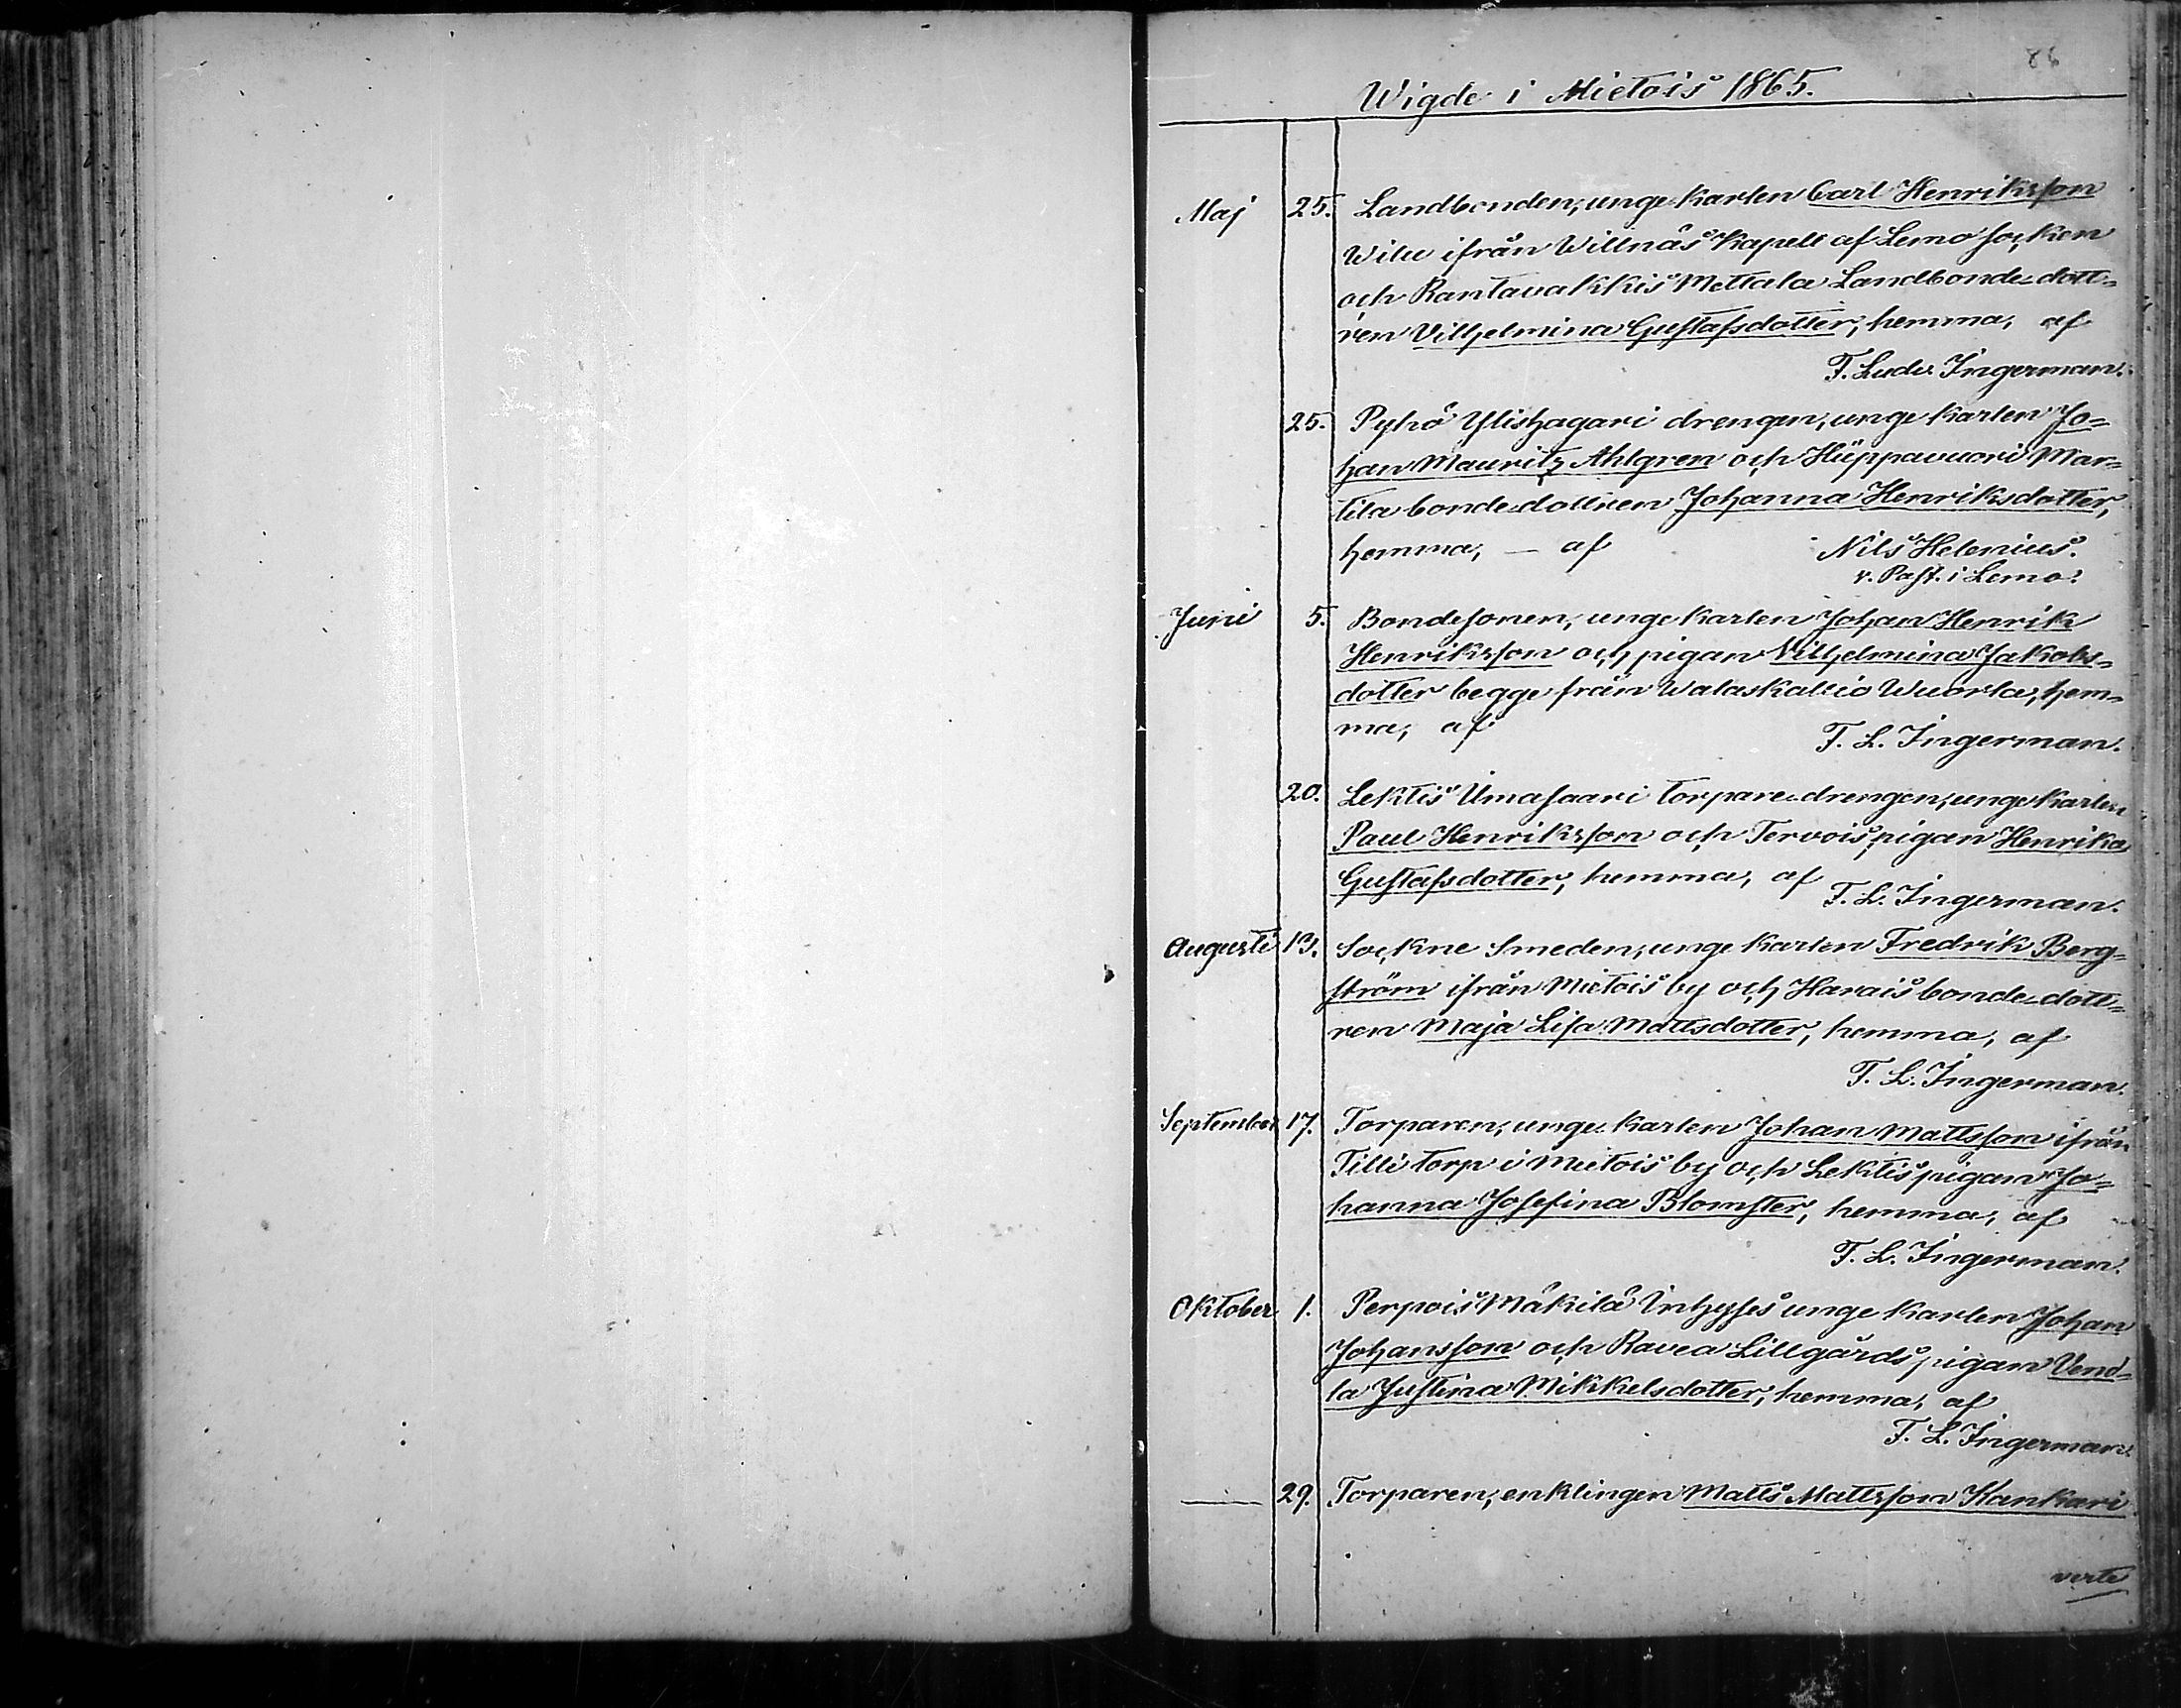 Wigde i Mietois 1865.
Maj 25. Landbonden, unge karlen Carl Henriksson
Wilu ifrån Willnäs Kapell af Lemo socken
och Rantavakkis Mettala Landbonde-dott=
ren Vilhelmina Gustafsdotter, hemma, af
F. Ludv. Ingerman.
25. Pyhö Ylishagari drengen, unge karlen Jo=
han Mauritz Ahlgren och Hüppavuori Mar=
tila bondedottren Johanna Henriksdotter,
hemma, — af Nils Helenius.
v. Past. i Lemo.
Juni 5. Bondesonen, unge karlen Johan Henrik
Henriksson och pigan Vilhelmina Jakobs=
dotter begge från Walaskallio Wuorla, hem=
ma, af F. L. Ingerman.
20. Lektis Umasaari torpare drengen, unge karlen
Paul Henriksson och Tervois pigan Henrika
Gustafsdotter, hemma, af F. L. Ingerman.
Augusti 13. Sockne Smeden, unge karlen Fredrik Berg=
ström ifrån Mietois by och Harais bonde-dott=
ren Maja Lisa Mattsdotter, hemma, af
F. L. Ingerman.
September 17. Torparen, unge karlen Johan Mattsson ifrån
Tilli torp i Mietois by och Lektis pigan Jo=
hanna Josefina Blomster, hemma, af
F. L. Ingerman.
Oktober 1. Perpois Mäkilä Inhyses unge karlen Johan
Johansson och Ravea Lillgårds pigan Vend=
la Justina Mikkelsdotter, hemma, af
F. L. Ingerman.
— 29. Torparen, enklingen Matts Mattsson Kankari
verte